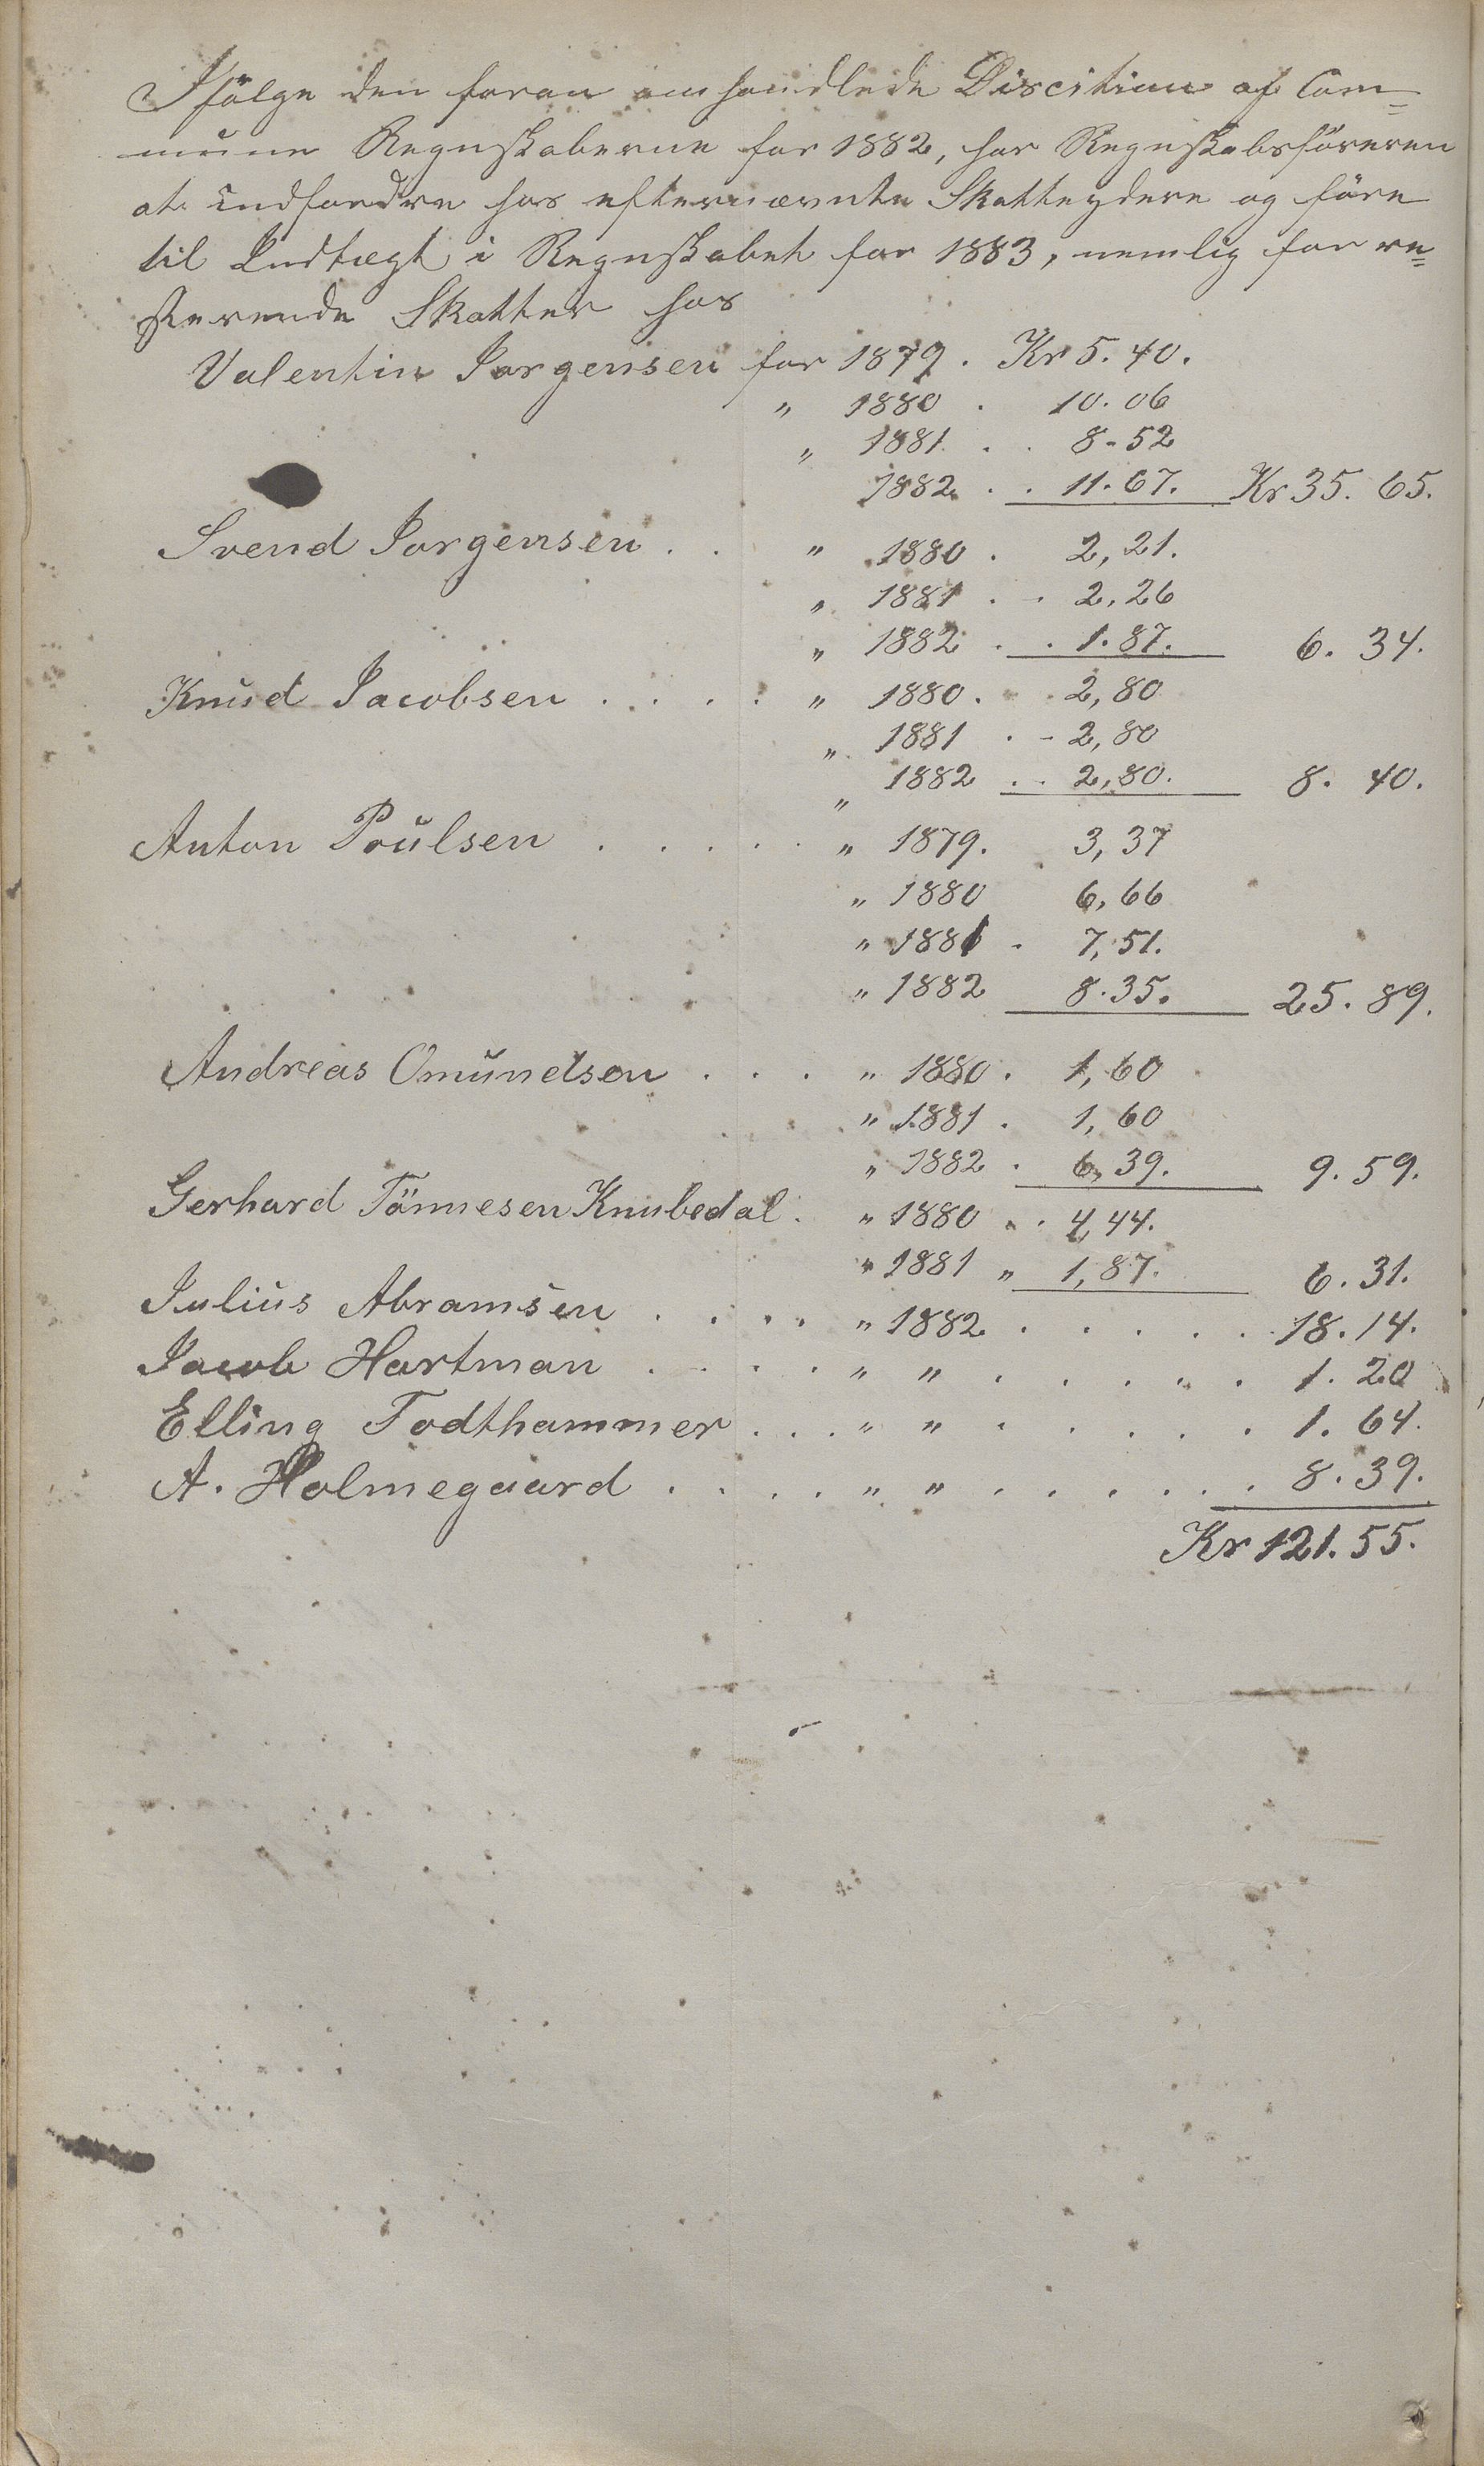 Ifölge den foran omhandlede Discition af Com=
mune Regnskaberne for 1882, har Regnskabsföreren
at indfordre hos efternævnte Skatteydere og före
til Indtægt i Regnskabet for 1883, nemlig for re=
sterende Skatter hos
Valentin Jorgensen for 1879. Kr 5.40.
" 1880 . 10.06
" 1881 . . 8-52
1882 . . 11.67. Kr 35. 65.
Svend Jorgensen . . " 1880 . 2,21.
" 1881 . . 2,26
" 1882 . . 1.87. 6. 34.
Knud Jacobsen . . . . " 1880 . . 2,80
" 1881 . - 2,80
" 1882 . . 2,80. 8. 40.
Anton Poulsen . . . . . " 1879. 3,37
" 1880 6,66
" 1881 . 7,51.
" 1882 8.35. 25. 89.
Andreas Omundsen . . . " 1880 . 1,60
" 1881 . 1,60
" 1882 . 6,39. 9. 59.
Gerhard Tönnesen Knubedal . " 1880 . . 4,44.
" 1881 " 1,87. 6. 31.
Julius Abramsen . . . . " 1882 . . . . . 18. 14.
Jacob Hartman . . . . " " . . . . . 1. 20
Elling Todthammer . . . " " . . . . . 1. 64.
A. Holmegaard . . . . " " . . . . . . 8. 39.
Kr 121. 55.